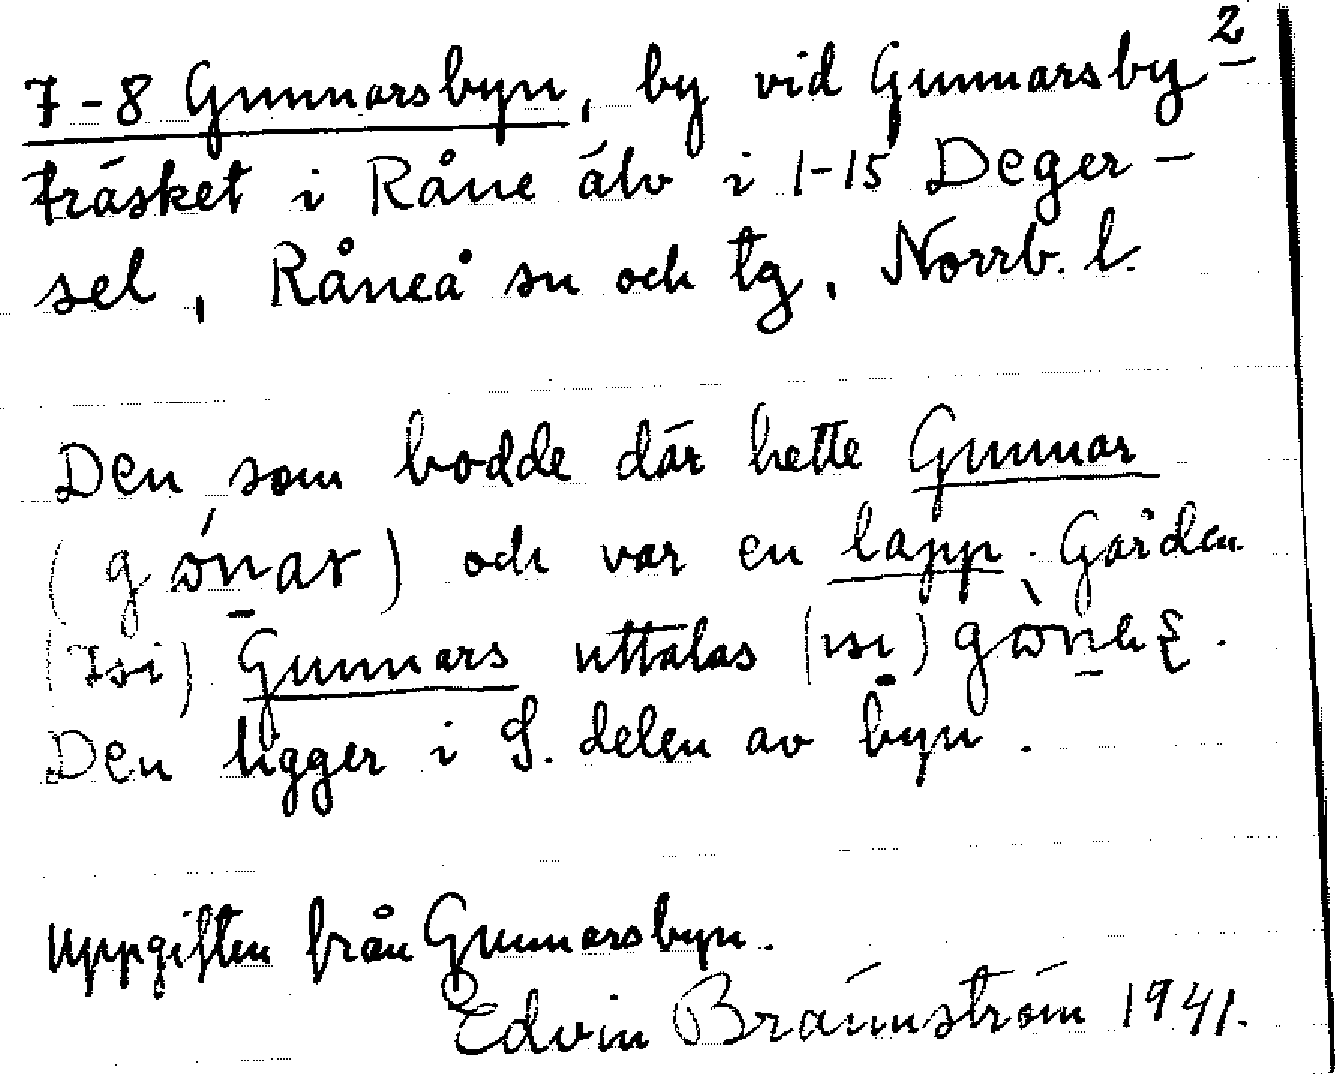 2
7-8 Gunnarsbyn, by vid Gunnarsby-
träsket i Råne älv i 1-15 Deger-
sel, Råneå sn och tg, Norrb. l.
Den som bodde där hette Gunnar
( ) och var en lapp. Gården
Gunnars uttalas
Den ligger i S. delen av byn.
Uppgiften från Gunnarsbyn.
Edvin Brännström 1941.